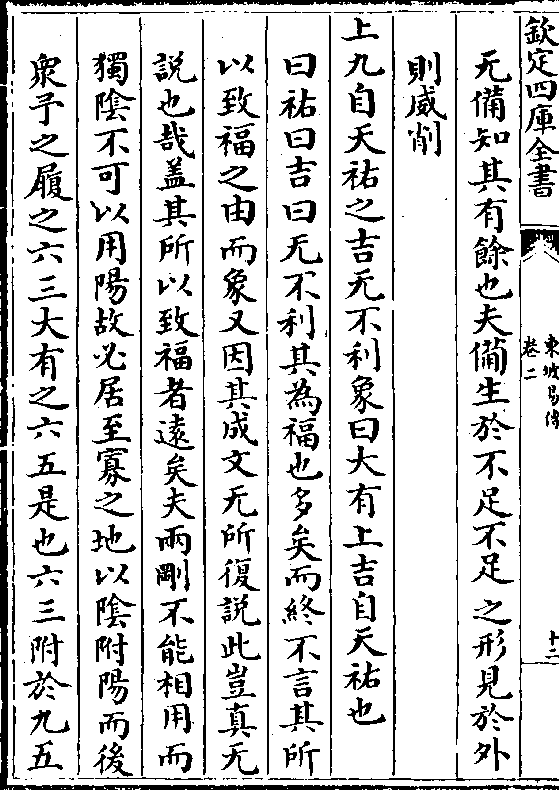 欽定四庫全書
東坡易傳
卷二
十二
无備知其有餘也夫備生於不足不足之形見於外
則威削
上九自天祐之吉无不利象曰大有上吉自天祐也
曰祐曰吉曰无不利其為福也多矣而終不言其所
以致福之由而象又因其成文无所復説此豈真无
説也哉蓋其所以致福者遠矣夫兩剛不能相用而
獨陰不可以用陽故必居至寡之地以陰附陽而後
衆予之履之六三大有之六五是也六三附於九五